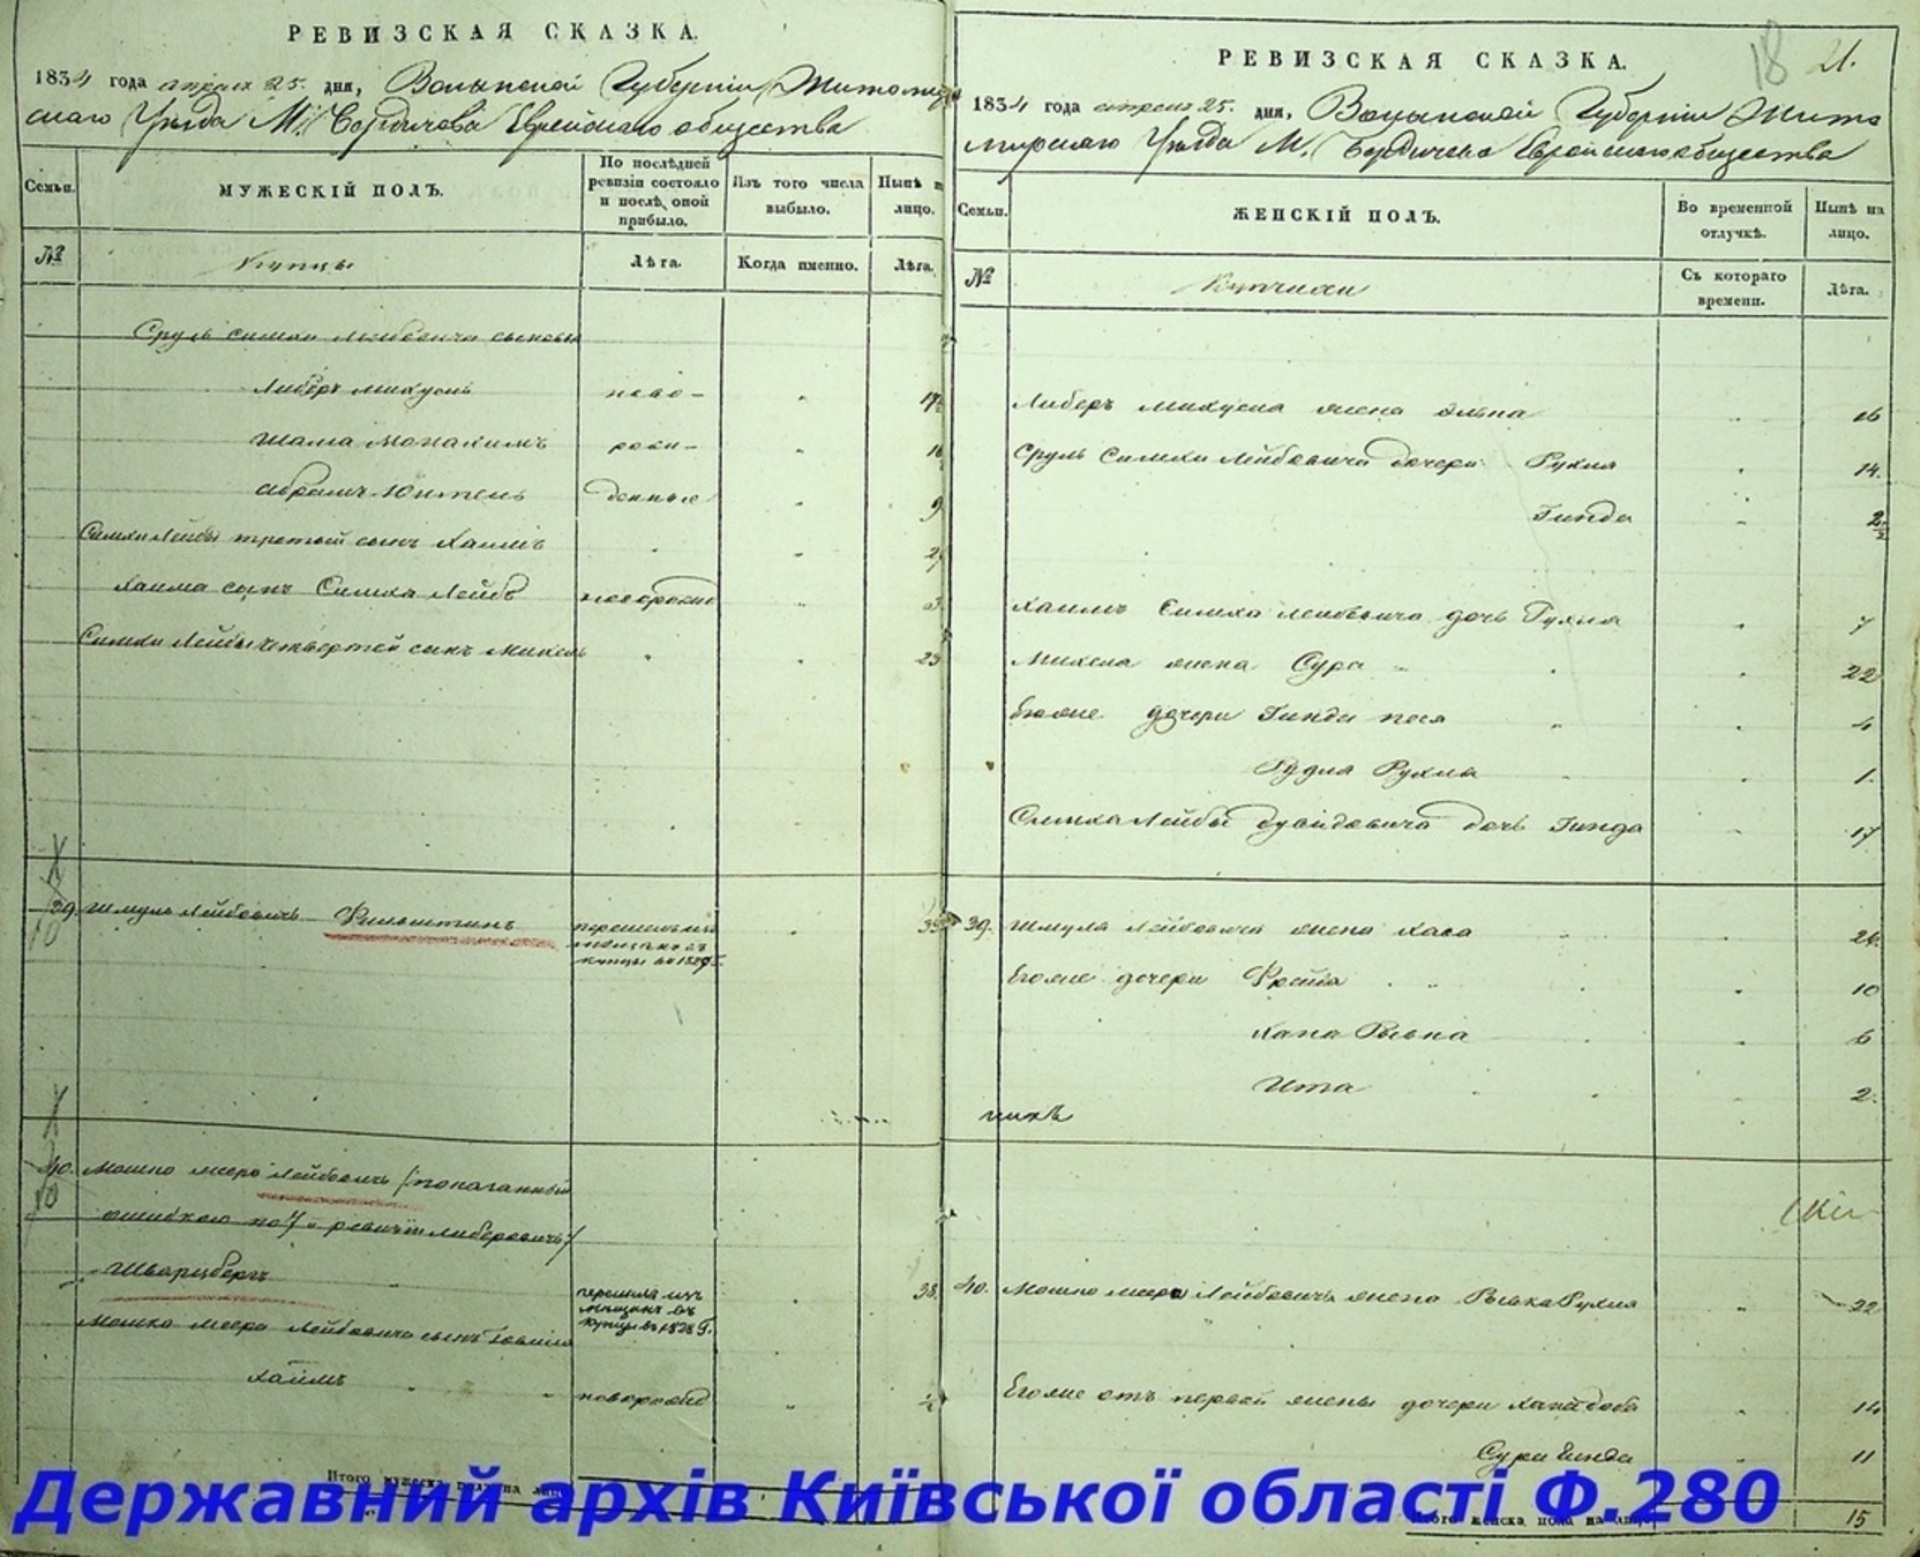 РЕВИЗСКАЯ СКАЗКА.
1834 года апреля 25. дня, Волынской Губернии Житомир
скаго Уезда М. Бердичева Еврейскаго общества
Семьи.
МУЖЕСКІЙ ПОЛЪ.
По послѣдней ревизіи состояло и послѣ оной прибыло.
Изъ того числа выбыло.
Нынѣ на лицо.
№
Купцы
Лѣта.
Когда именно.
Лѣта.
Сруль Симхи Лейбовича сыновья
Либеръ Михуель ново- 17
Шама Монахимъ рожи- 16
Абрамъ Юктель денные 9
Симхи Лейбы третый сынъ Хаимъ
Хаима сынъ Симха Лейбъ новорожд 3
Симхи Лейбы четвертой сынъ Михель 23
39. Шмуль Лейбовичъ Фильштинъ
перешелъ изъ
мещанъ въ
купцы въ
40. Мошко Мееръ Лейбовичъ /показанный
ошибкою по 7й ревизіи Либеровичъ/
Шварцбергъ
перешелъ изъ мещанъ въ купцы въ 1828 г. 38.
Мошко Меера Лейбовича сынъ
Хаимъ новорожд ½
Итого мужеска пола на лицо
РЕВИЗСКАЯ СКАЗКА.
18 21.
1834 года апреля 25. дня, Волынской Губерніи Жито
мирскаго Уезда М. Бердичева Еврейскаго общества
Семьи.
ЖЕНСКІЙ ПОЛЪ.
Во временной отлучкѣ.
Нынѣ на лицо.
№
Купчихи
Съ котораго времени.
Лѣта.
Либеръ Михуеля жена 16
Сруль Симхи Лейбовича дочери Рухля 14.
Гинда 2½
Хаимъ Симха Лейбовича дочь Рухля 7
Михеля жена Сура 22
Егоже дочери Гинда Песя 4
Рухля 1.
Симха Лейбы Дувидовича дочь Гинда 17
39. Шмуля Лейбовича жена Хава
Егоже дочери Фрейда 10
Хана Ривка 6
Ита 2.
40. Мошко Меера Лейбовича жена Ривка Рухля 22
Егоже отъ первой жены дочери Хана Доба 14
Сура Гинда 11
Итого женска пола на лицо 15
Державний архів Київської області Ф.280